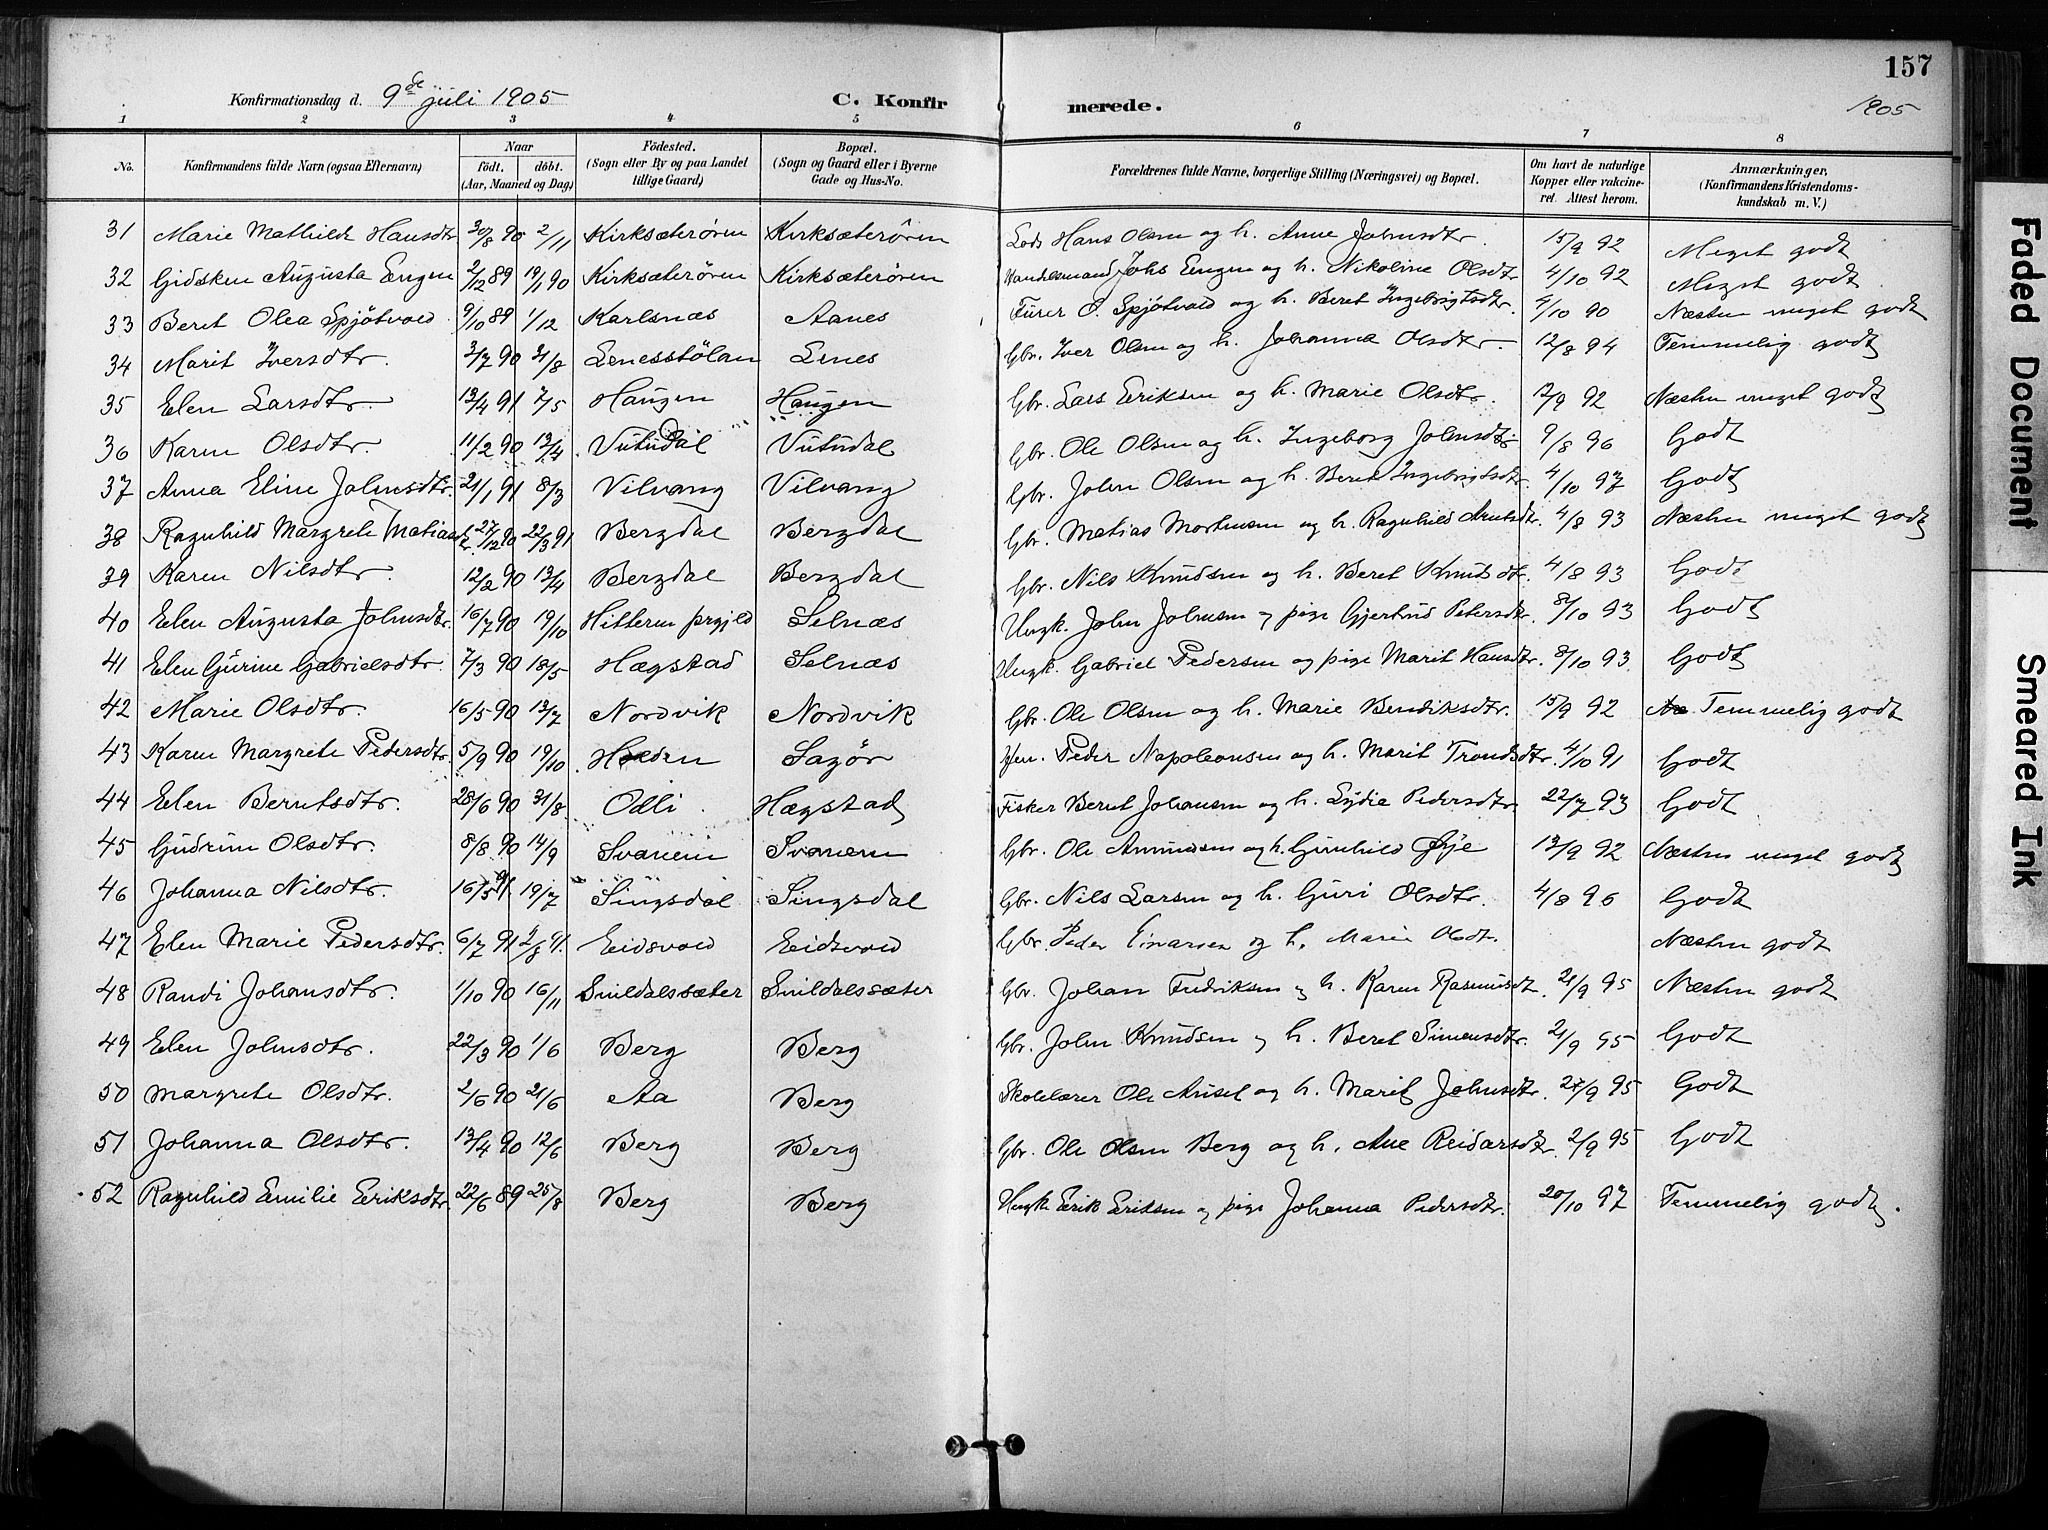 157
Konfirmationsdag d. 9de juli 1905 C. Konfirmerede. 1905
1 2 3 4 5 6 7 8
No. Konfirmandens fulde Navn (ogsaa Efternavn) Naar födt. döbt. (Aar, Maaned og Dag) Födested. (Sogn eller By og paa Landet tillige Gaard) Bopæl. (Sogn og Gaard eller i Byerne Gade og Hus-No. Forældrenes fulde Navne, borgerlige Stilling (Næringsvei) og Bopæl. Om havt de naturlige Kopper eller vakcineret. Attest herom. Anmærkninger, (Konfirmandens Kristendomskundskab m. V.)
31 Marie Mathilde Hansdtr 30/8 90 2/11 Kirksæterøren Kirksæterøren Lods Hans Olsen og h. Anne Johnsdtr. 15/9 92 Meget godt
32 Gidsken Augusta Engen 2/12 89 19/1 90 Kirksæterøren Kirksæterøren Handelsmand Johs Engen og h. Nikoline Olsdtr 4/10 92 Meget godt
33 Beret Olea Spjötvold 9/10 89 1/12 Karlsnæs Aanes Furer O. Spjötvold og h. Beret Ingebrigtsdtr. 4/10 90 Næsten meget godt
34 Marit Iversdtr. 3/7 90 31/8 Lenesstölan Lenes Gbr. Iver Olsen og h. Johanna Olsdtr. 12/8 94 Temmelig godt
35 Elen Larsdtr. 13/4 91 7/5 Haugen Haugen Gbr. Lars Eriksen og h. Marie Olsdtr. 12/9 92 Næsten meget godt
36 Karen Olsdtr. 11/2 90 13/4 Vutudal Vutudal Gbr. Ole Olsen og h. Ingeborg Johnsdtr. 9/8 96 Godt
37 Anna Eline Johnsdtr. 21/1 91 8/3 Vilvang Vilvang Gbr. John Olsen og h. Beret Ingebrigtsdtr. 4/10 97 Godt
38 Ragnhild Margrete Matiasdtr. 27/12 90 22/3 91 Bergdal Bergdal Gbr. Matias Mortensen og h. Ragnhild Arntsdtr. 4/8 93 Næsten meget godt
39 Karen Nilsdtr. 12/2 90 13/4 Bergdal Bergdal Gbr. Nils Knudsen og h. Beret Knutsdtr. 4/8 93 Godt
40 Elen Augusta Johnsdtr. 16/7 90 19/10 Hitteren prgjld Selnæs Ungk. John Johnsen og pige Gjertrud Petersdtr. 8/10 93 Godt
41 Elen Gurine Gabrielsdtr. 7/3 90 18/5 Hægstad Selnæs Ungk. Gabriel Pedersen og pige Marit Hansdtr. 8/10 93 Godt
42 Marie Olsdtr. 16/5 90 13/7 Nordvik Nordvik Gbr. Ole Olsen og h. Marie Bendiksdtr. 15/9 92 Temmelig godt
43 Karen Margrete Pedersdtr. 5/9 90 19/10 Holden Sagør Peder Napoleonsen og h. Marit Trondsdtr. 4/10 91 Godt
44 Elen Berntsdtr. 28/6 90 31/8 Odli Hægstad Fisker Bernt Johansen og h. Lydie Pedersdtr. 22/7 93 Godt
45 Gudrun Olsdtr. 8/8 90 14/9 Svanem Svanem Gbr. Ole Amundsen og h. Gunhild Øye 13/9 92 Næsten meget godt
46 Johanna Nilsdtr. 16/5 91 19/7 Singsdal Singsdal Gbr. Nils Larsen og h. Guri Olsdtr. 4/8 96 Godt
47 Elen Marie Pedersdtr. 6/7 91 2/8 91. Eidsvold Eidsvold Gbr. Peder Einarsen og h. Marie Olsdt. Næsten godt
48 Randi Johansdtr. 1/10 90 16/11 Snildalssæter Snildalssæter Gbr. Johan Fredriksen og h. Karen Rasmusdt. 21/9 95 Næsten godt
49 Elen Johnsdtr. 22/3 90 1/6 Berg Berg Gbr. John Knudsen og h. Beret Simensdtr. 21/9 95 Godt
50 Margrete Olsdtr. 2/6 90 21/6 Aa Berg Skolelærer Ole Aursel og h. Marit Johnsdtr. 27/9 95 Godt
51 Johanna Olsdtr. 13/4 90 12/6 Berg Berg Gbr. Ole Olsen Berg og h. Ane Reidarsdtr. 2/9 95 Godt
52 Ragnhild Emilie Eriksdtr. 22/6 89 25/8 Berg Berg Ungk Erik Eriksen og pige Johanna Pedersdtr. 20/10 97 Temmelig godt.
Faded Document
Smeared Ink